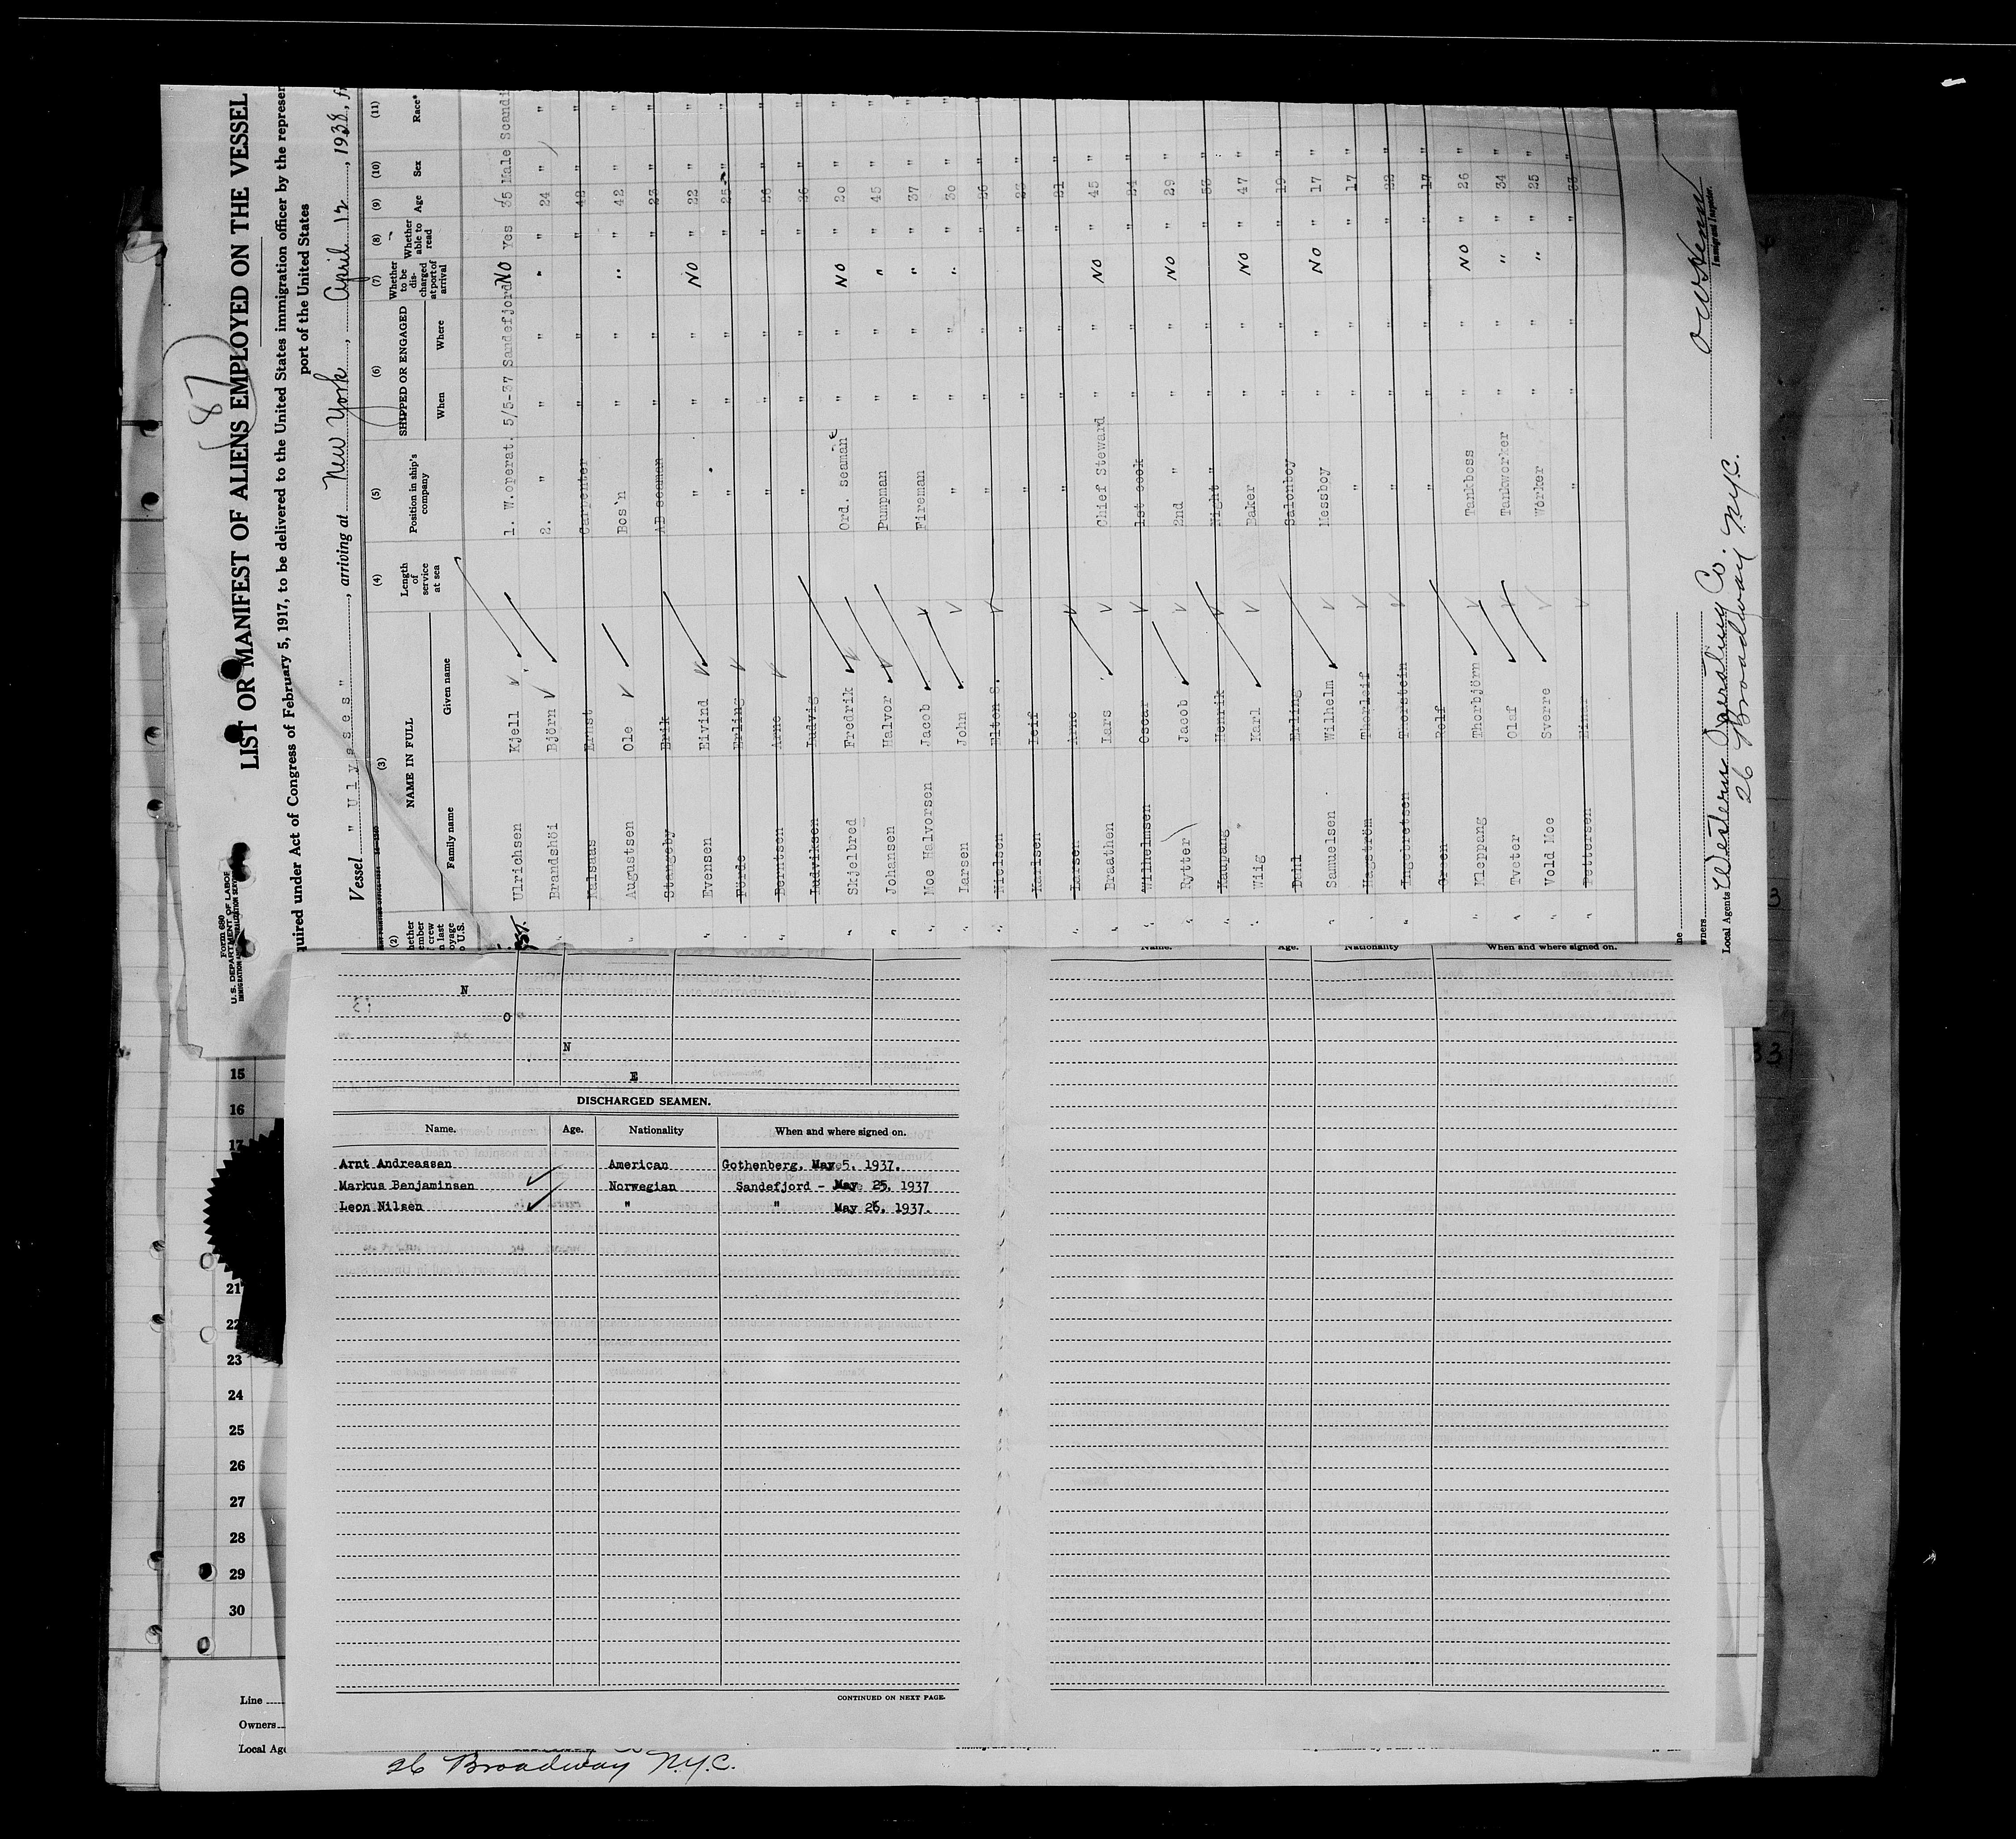 Form 680
U.S. DEPARTMENT OF LABOR
(87)
LIST OR MANIFEST OF ALIENS EMPLOYED ON THE VESSEL
quired under Act of Congress of February 5, 1917, to be delivered to the United States immigration officer by the represen
port of the United States
Vessel "Ulysses", arriving at New York, April 12, 1938, fr
(2) (3) (4) (5) (6) (7) (8) (9) (10) (11)
NAME IN FULL Length of service at sea Position in ship's company SHIPPED OR ENGAGED Whether to be discharged at port of arrival Whether able to read Age Sex Race*
Family name Given name When Where
Ulrichsen Kjell 1. W.operat. 5/5-37 Sandefjord NO Yes 35 Male Scandi
Brandshöi Björn 2. " " " " " 24 " "
Falsaas Ernst Carpenter " " " 48 " "
Augustsen Ole Bos'n " " " " 42 " "
Stangeby Erik AB seaman " " " 23 " "
Evensen Eivind " " " NO " 22 " "
Förde Erling " " " " 25 " "
Berntsen Arne " " " " 26 " "
Ludviksen Ludvig " " " " 36 " "
Skjelbred Fredrik Ord. seaman " " NO " 20 " "
Johansen Halvor Pumpman " " " " 45 " "
Moe Halvorsen Jacob Fireman " " " " 37 " "
Larsen John " " " " " 30 " "
Nielsen Elton S. " " " " 26 " "
Karlsen Leif " " " "
Larsen Arne " " " " 21 " "
Braathen Lars Chief Steward " " NO " 45 " "
Wilhelmsen Oscar 1st cook " " " 24 " "
Rytter Jacob 2nd " " " NO " 29 " "
Kaupang Henrik Night " " " " 33
Wiig Karl Baker " " NO " 47 " "
Dehl Erling Salonboy " " " 19 " "
Samuelsen Wilhelm Messboy " " NO " 17 " "
Hagström Thorleif " " " " 17 " "
Ingebretsen Thorstein " " " " 22 " "
Gren Rolf " " " " 17 " "
Kleppang Thorbjörn Tankboss " " NO " 26 " "
Tveter Olaf Tankworker " " " " 34 " "
Vold Moe Sverre Worker " " " " 25 " "
Pettersen Einar " " " " 33 " "
Immigrant Inspector.
Local Agents Western Operating Co.
26 Broadway N.Y.C.
N
O
N
E
DISCHARGED SEAMEN.
Name. Age. Nationality When and where signed on.
Arnt Andreassen American Gothenberg, May 5. 1937.
Markus Benjaminsen Norwegian Sandefjord - May 25, 1937
Leon Nilsen " " May 26, 1937.
CONTINUED ON NEXT PAGE.
Name. Age. Nationality When and where signed on.
15
16
17
21
22
23
24
25
26
27
28
29
30
33
Line
Owners
Local Age
26 Broadway N.Y.C.